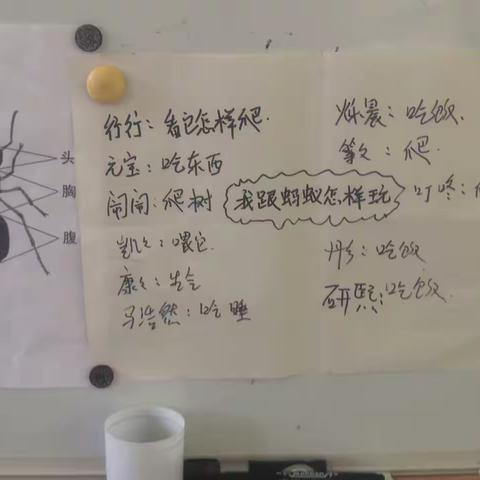 头
胸
腹
行行：看它怎样爬.
元宝：吃东西
闹闹：爬树
凯凯：喂它.
康康：生气
马浩然：吃睡
我跟蚂蚁怎样玩
烁晨：吃饭.
爬.
叮咚：
吃饭
研熙：吃饭.